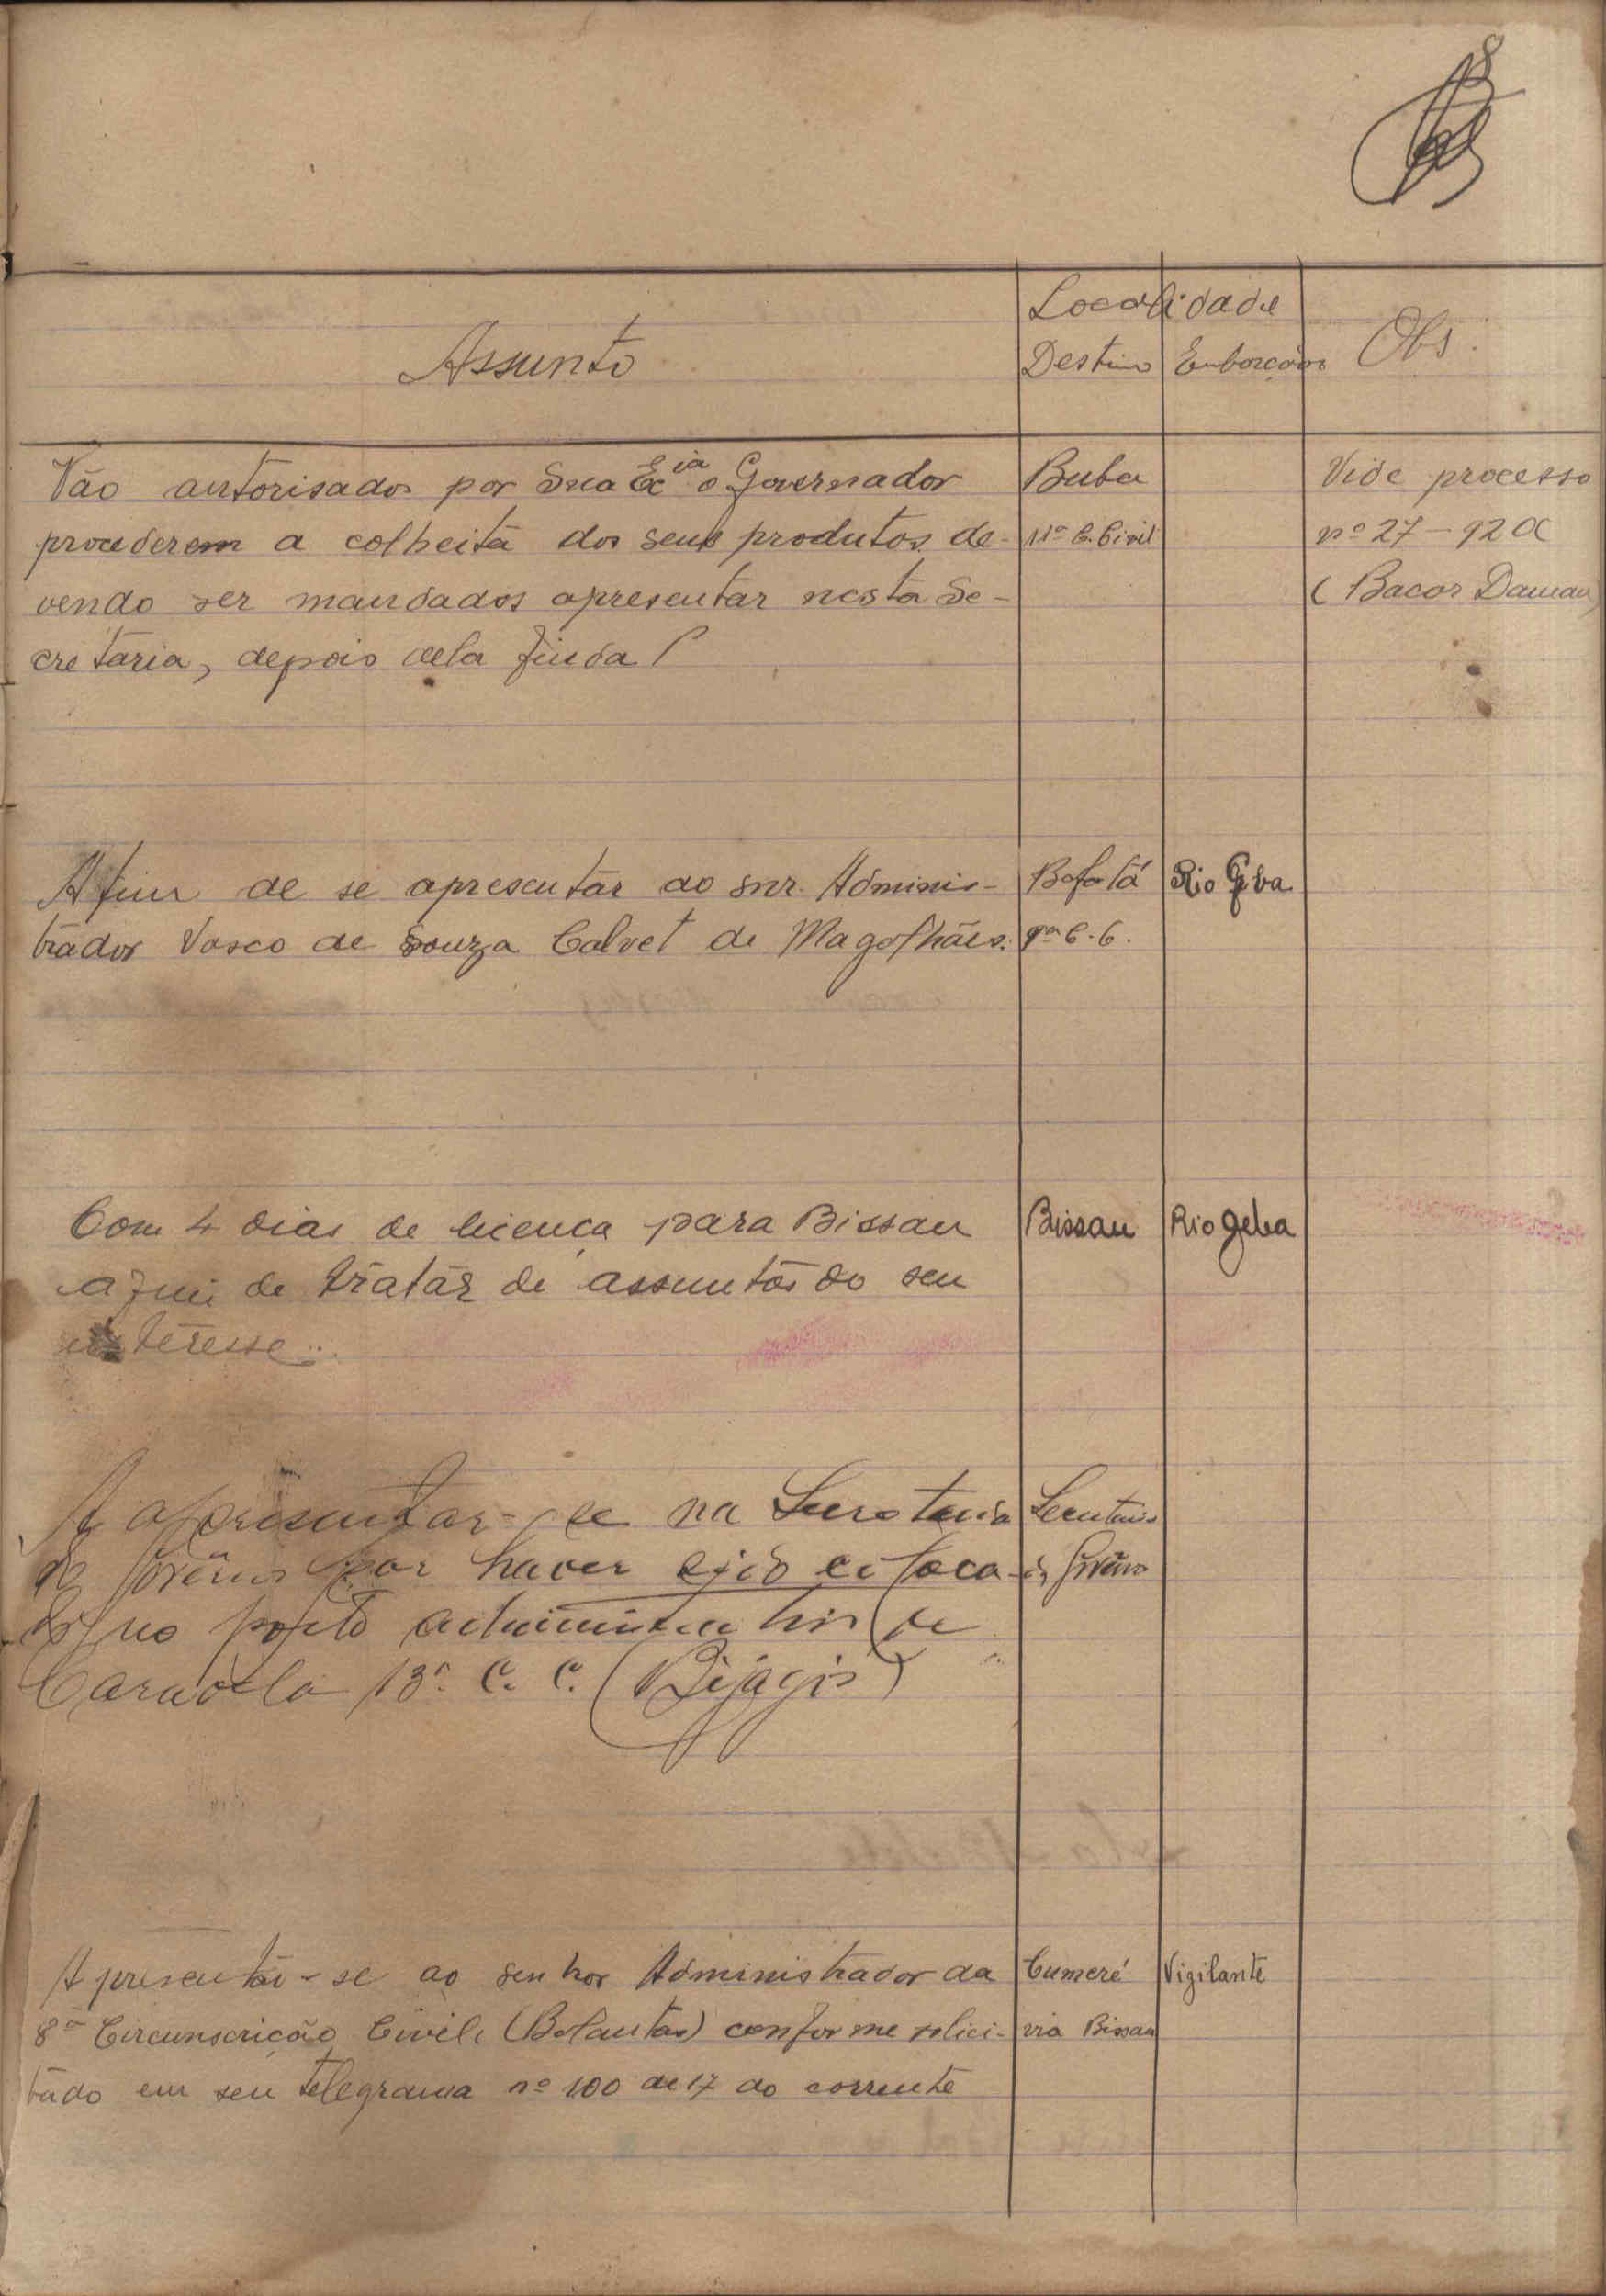 8
Localidade
Assunto
Destino Embarcação Obs.
Vão autorisados por Sua Ex.ia o Governador Buba Vide processo
procederem a colheita dos seus produtos de- 11ª C. Civil nº 27-92 A
vendo ser mandados apresentar nesta Se- (Bacar Daman)
cretaria, depois dela finda
Afim de se apresentar ao snr. Adminis- Bafatá Rio Geba
trador Vasco de Souza Calvet de Magalhães. C. C.
Com 4 dias de licença para Bissau Bissau Rio Geba
afim de tratar de assuntos do seu
interesse.
A apresentar-se na Secretaria Secretaria
de Govêrno por haver sido coloca- de Govêrno
do no posto administrativo de
Caravela 13ª C. C. (Bijagós)
Apresentar-se ao senhor Administrador da Cumeré Vigilante
8ª Circunscrição Civil (Balantas) conforme solici- via Bissau
tado em seu telegrama nº 100 de 17 do corrente